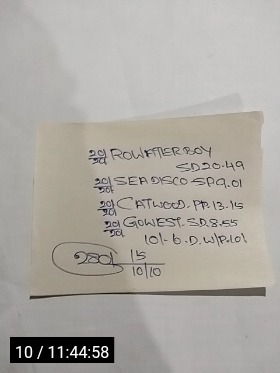 20/20 ROWAFTERBOY
SD20.49
20/20 SEADISCO-SP.9.01
20/20 CATWOOD. PP. 13.15
20/20 GOWEST. SD.8.55
10/- 6.D.W/P.101
15
10/10
10 / 11:44:58